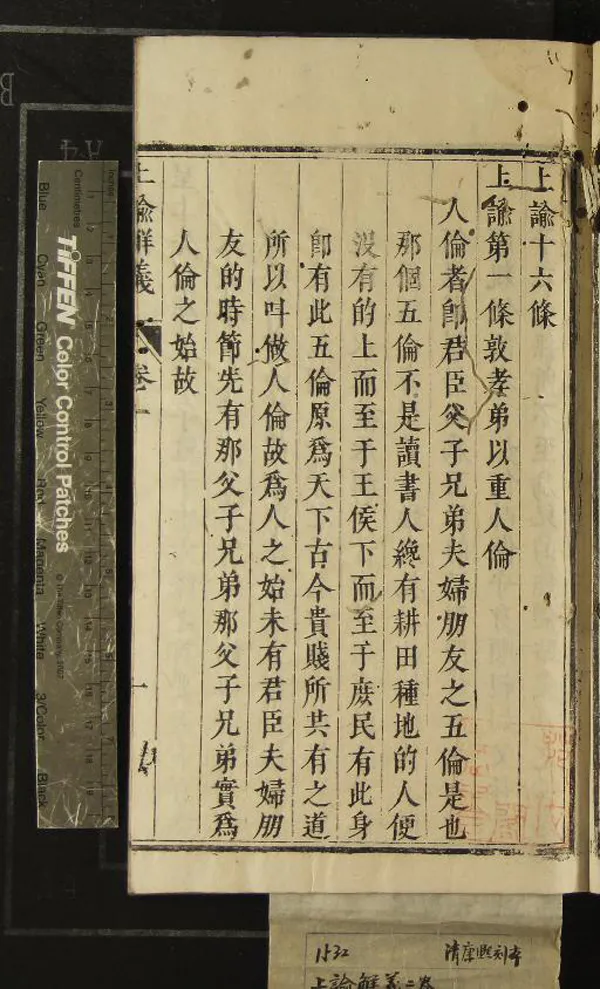 上諭十六條
上諭第一條敦孝弟以重人倫
人倫者卽君臣父子兄弟夫婦朋友之五倫是也
那個五倫不是讀書人纔有耕田種地的人便
沒有的上而至于王侯下而至于庶民有此身
卽有此五倫原爲天下古今貴賤所共有之道
所以呌做人倫故爲人之始未有君臣夫婦朋
友的時節先有那父子兄弟那父子兄弟實爲
人倫之始故
上諭解義
卷一
一
Inches
Centimetres
TIFFEN Color Control Patches
© The Tiffen Company, 2007
Blue
Cyan
Green
Yellow
Red
Magenta
White
3/Color
Black
1532
清康熙刻本
上諭解義二卷